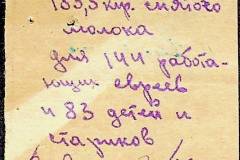 133,5 кгр. снятого
молока
для 144 работа-
ющих евреев
и 83 детей и
стариков